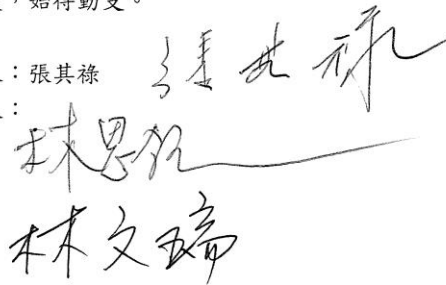 ，始得動支。
：張其祿 張其祿
：
林思銘
林文瑞